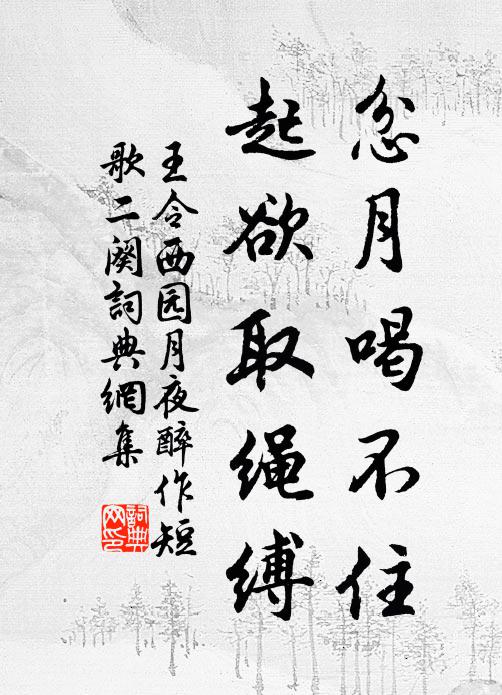 忿月喝不住
起欲取绳缚
王令西园月夜醉作短
歌二阕詞典網集
詞典网印